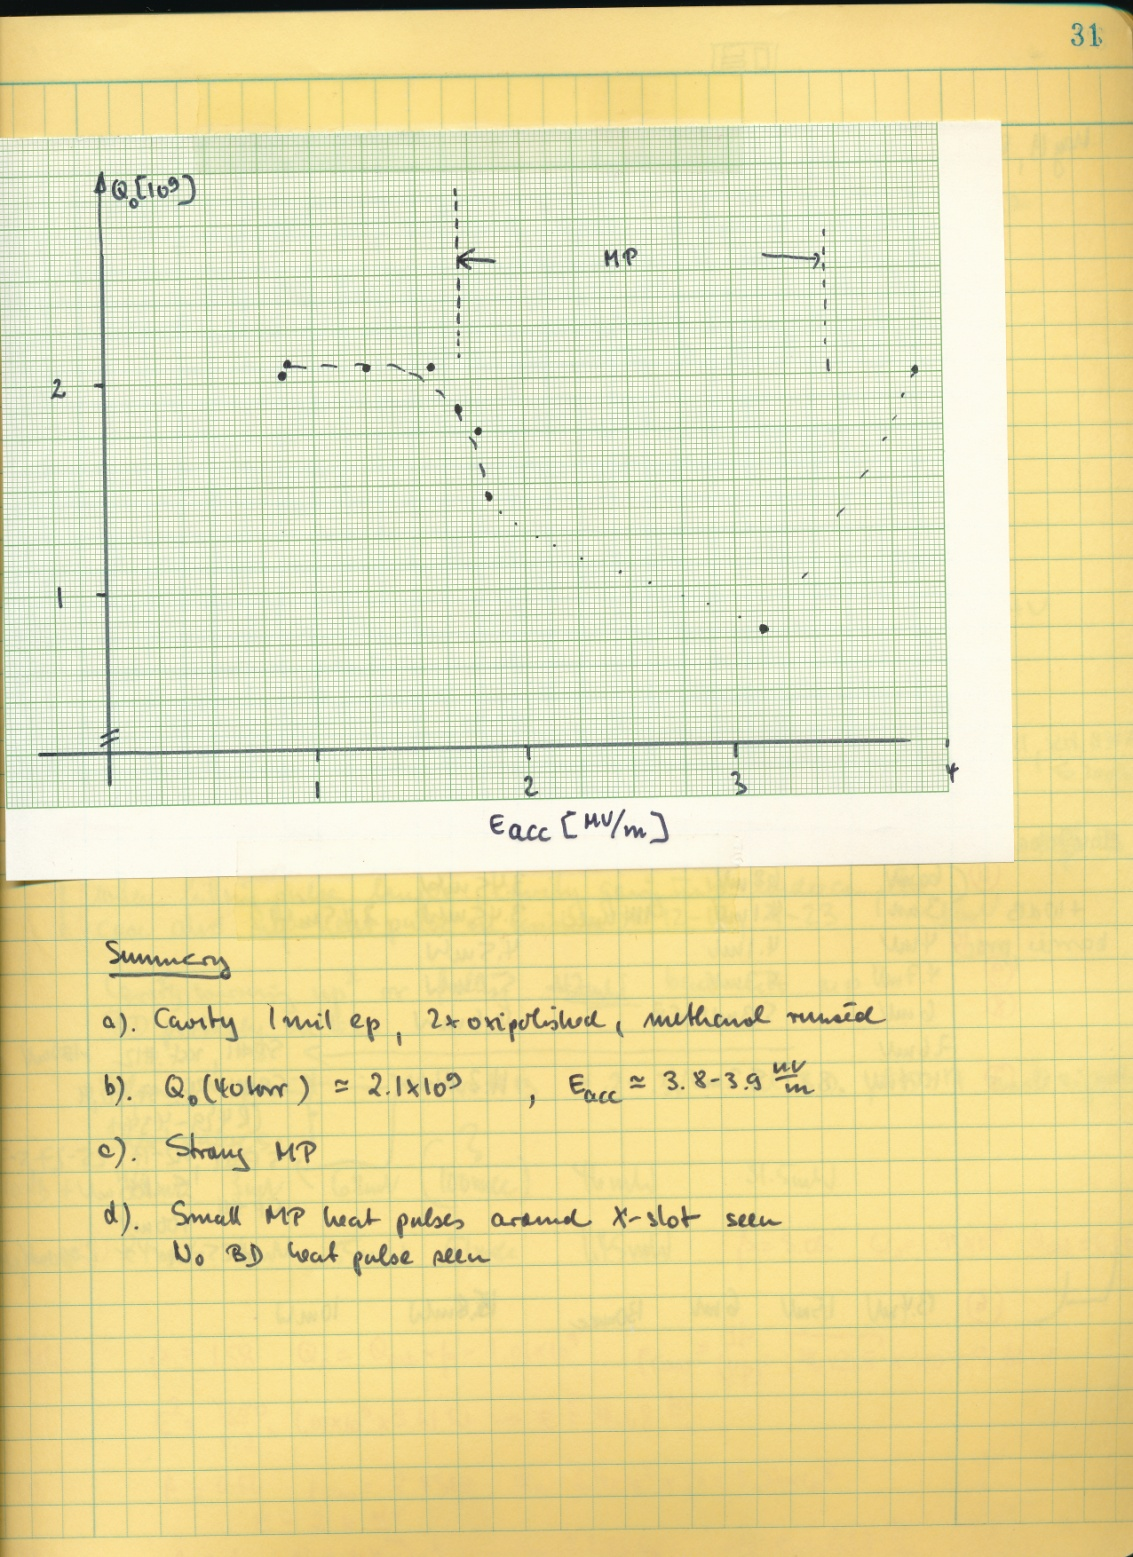 31
Q₀[10⁹]
MP
2
1
1 2 3 4
Eacc [MV/m]
Summary
a). Cavity 1mil ep, 2x oxipolished, methanol rinsed
b). Q₀(40torr) ≃ 2.1x10⁹ , Eacc ≃ 3.8-3.9 MV/m
c). Strong MP
d). Small MP heat pulses around X-slot seen
No BD heat pulse seen